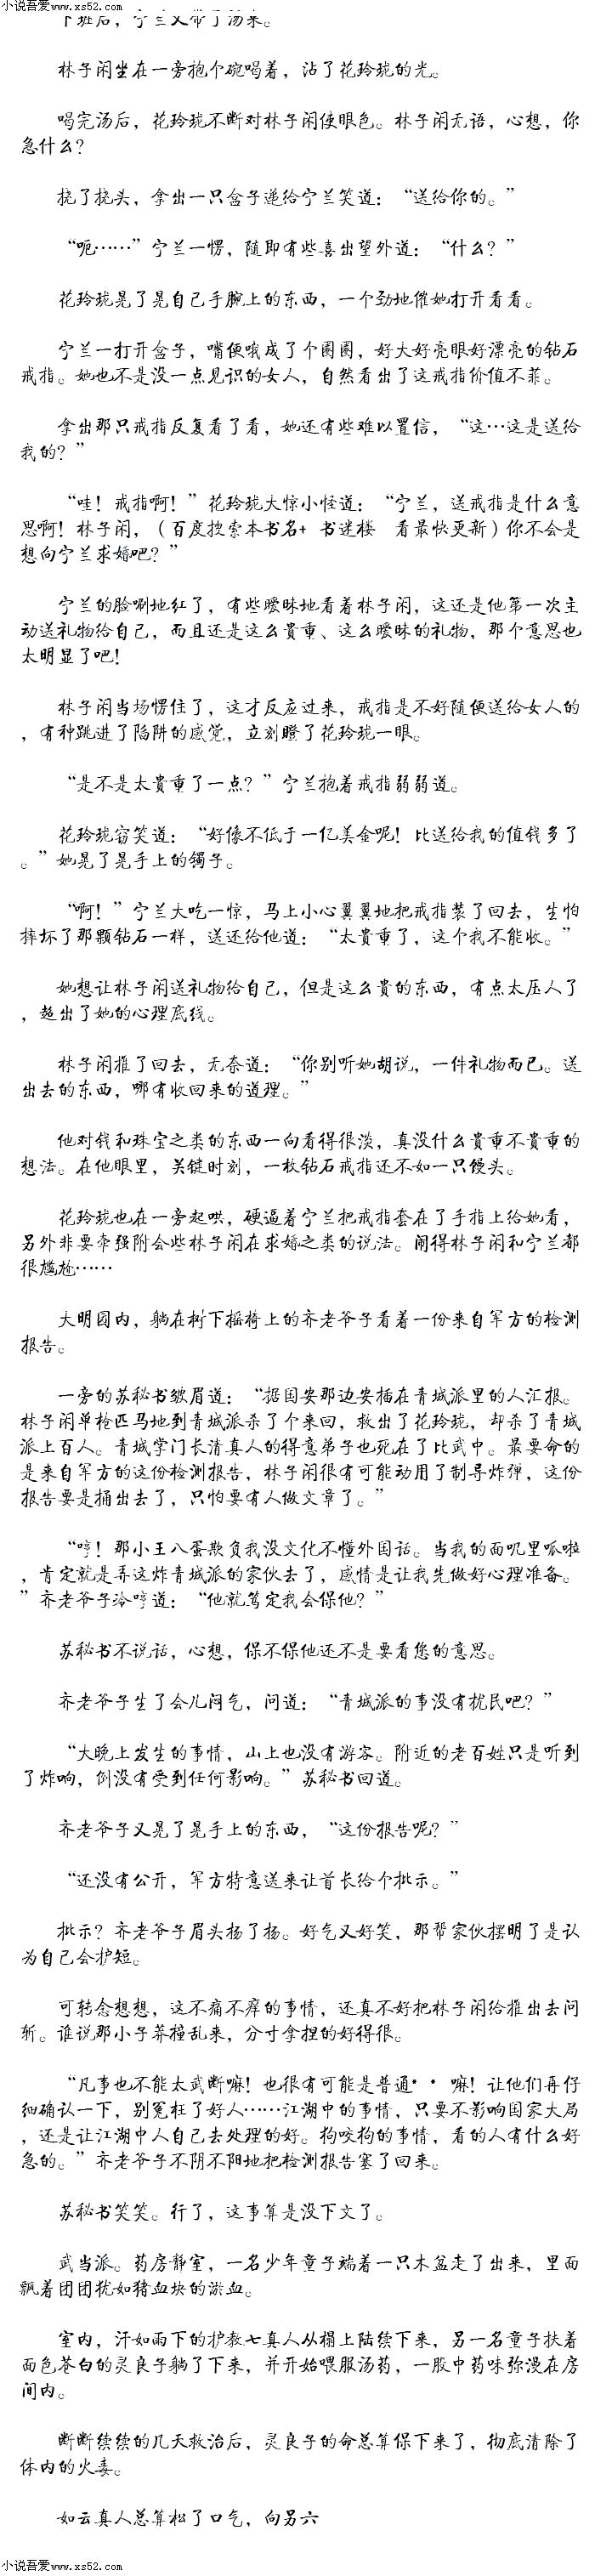 小说吾爱www.xs52.com
下班后，宁兰又带了汤来。
林子闲坐在一旁抱个碗喝着，沾了花玲珑的光。
喝完汤后，花玲珑不断对林子闲使眼色。林子闲无语，心想，你
急什么？
挠了挠头，拿出一只盒子递给宁兰笑道：“送给你的。”
“呃……”宁兰一愣，随即有些喜出望外道：“什么？”
花玲珑晃了晃自己手腕上的东西，一个劲地催她打开看看。
宁兰一打开盒子，嘴便哦成了个圈圈，好大好亮眼好漂亮的钻石
戒指。她也不是没一点见识的女人，自然看出了这戒指价值不菲。
拿出那只戒指反复看了看，她还有些难以置信，“这…这是送给
我的？”
“哇！戒指啊！”花玲珑大惊小怪道：“宁兰，送戒指是什么意
思啊！林子闲，（百度搜索本书名+ 书迷楼 看最快更新）你不会是
想向宁兰求婚吧？”
宁兰的脸唰地红了，有些暧昧地看着林子闲，这还是他第一次主
动送礼物给自己，而且还是这么贵重、这么暧昧的礼物，那个意思也
太明显了吧！
林子闲当场愣住了，这才反应过来，戒指是不好随便送给女人的
，有种跳进了陷阱的感觉，立刻瞪了花玲珑一眼。
“是不是太贵重了一点？”宁兰抱着戒指弱弱道。
花玲珑窃笑道：“好像不低于一亿美金呢！比送给我的值钱多了
。”她晃了晃手上的镯子。
“啊！”宁兰大吃一惊，马上小心翼翼地把戒指装了回去，生怕
摔坏了那颗钻石一样，送还给他道：“太贵重了，这个我不能收。”
她想让林子闲送礼物给自己，但是这么贵的东西，有点太压人了
，超出了她的心理底线。
林子闲推了回去，无奈道：“你别听她胡说，一件礼物而已。送
出去的东西，哪有收回来的道理。”
他对钱和珠宝之类的东西一向看得很淡，真没什么贵重不贵重的
想法。在他眼里，关键时刻，一枚钻石戒指还不如一只馒头。
花玲珑也在一旁起哄，硬逼着宁兰把戒指套在了手指上给她看，
另外非要牵强附会些林子闲在求婚之类的说法。闹得林子闲和宁兰都
很尴尬……
大明园内，躺在树下摇椅上的齐老爷子看着一份来自军方的检测
报告。
一旁的苏秘书皱眉道：“据国安那边安插在青城派里的人汇报。
林子闲单枪匹马地到青城派杀了个来回，救出了花玲珑，却杀了青城
派上百人。青城掌门长清真人的得意弟子也死在了比武中。最要命的
是来自军方的这份检测报告，林子闲很有可能动用了制导炸弹，这份
报告要是捅出去了，只怕要有人做文章了。”
“哼！那小王八蛋欺负我没文化不懂外国话。当我的面叽里呱啦
，肯定就是弄这炸青城派的家伙去了，感情是让我先做好心理准备。
”齐老爷子冷哼道：“他就笃定我会保他？”
苏秘书不说话，心想，保不保他还不是要看您的意思。
齐老爷子生了会儿闷气，问道：“青城派的事没有扰民吧？”
“大晚上发生的事情，山上也没有游客。附近的老百姓只是听到
了炸响，倒没有受到任何影响。”苏秘书回道。
齐老爷子又晃了晃手上的东西，“这份报告呢？”
“还没有公开，军方特意送来让首长给个批示。”
批示？齐老爷子眉头扬了扬。好气又好笑，那帮家伙摆明了是认
为自己会护短。
可转念想想，这不痛不痒的事情，还真不好把林子闲给推出去问
斩。谁说那小子莽撞乱来，分寸拿捏的好得很。
“凡事也不能太武断嘛！也很有可能是普通* * 嘛！让他们再仔
细确认一下，别冤枉了好人……江湖中的事情，只要不影响国家大局
，还是让江湖中人自己去处理的好。狗咬狗的事情，看的人有什么好
急的。”齐老爷子不阴不阳地把检测报告塞了回来。
苏秘书笑笑。行了，这事算是没下文了。
武当派。药房静室，一名少年童子端着一只木盆走了出来，里面
飘着团团犹如猪血块的淤血。
室内，汗如雨下的护教七真人从榻上陆续下来，另一名童子扶着
面色苍白的灵良子躺了下来，并开始喂服汤药，一股中药味弥漫在房
间内。
断断续续的几天救治后，灵良子的命总算保下来了，彻底清除了
体内的火毒。
如云真人总算松了口气，向另六
小说吾爱www.xs52.com